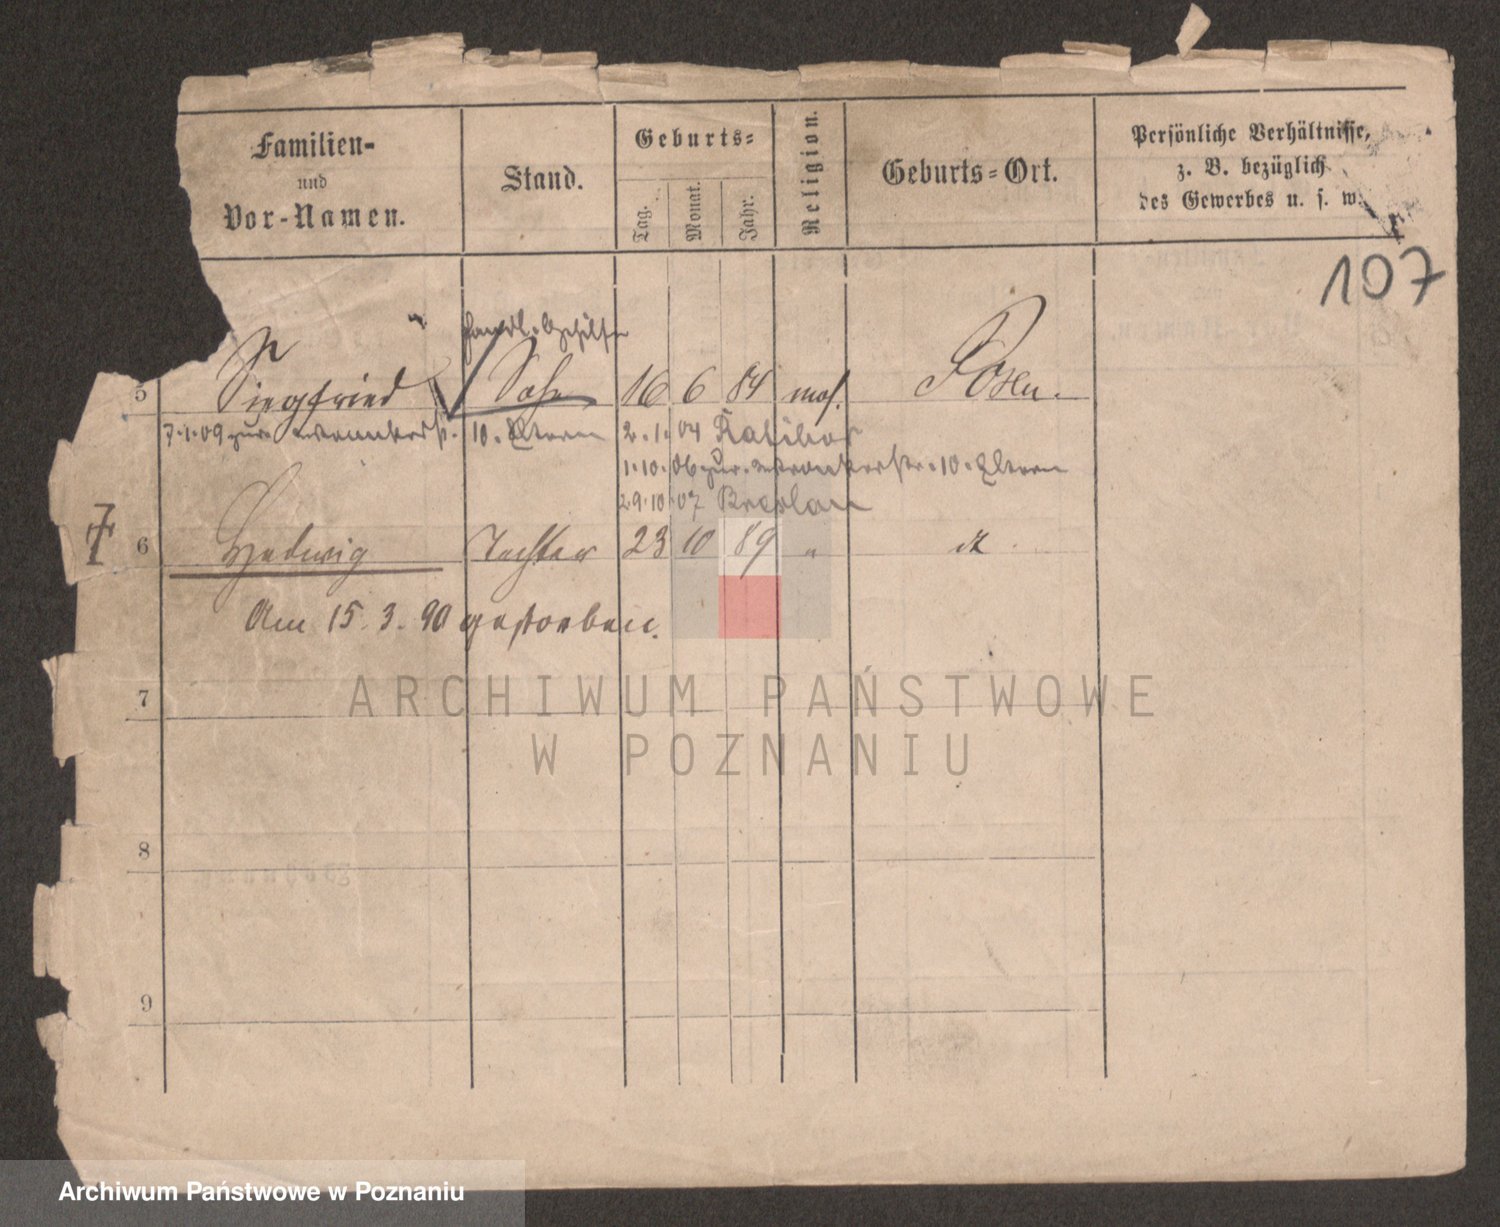 Familien-
und
Vor-Namen.
Stand.
Geburts-
Tag.
Monat.
Jahr.
Religion.
Geburts-Ort.
Persönliche Verhältnisse,
z. B. bezüglich
des Gewerbes u. s. w.
107
Handl. Gehilfe
5 Siegfried Sohn 16 6 84 mos. Posen.
7.1.09 zur. Wronkerstr. 10. Eltern 2.1.04 Ratibor
1.10.06 zur. Wronkerstr. 10. Eltern
29.10.07 Breslau
6 Hedwig Tochter 23 10 89 " dt
Am 15.3.90 gestorben.
7
ARCHIWUM PAŃSTWOWE
W POZNANIU
8
9
Archiwum Państwowe w Poznaniu